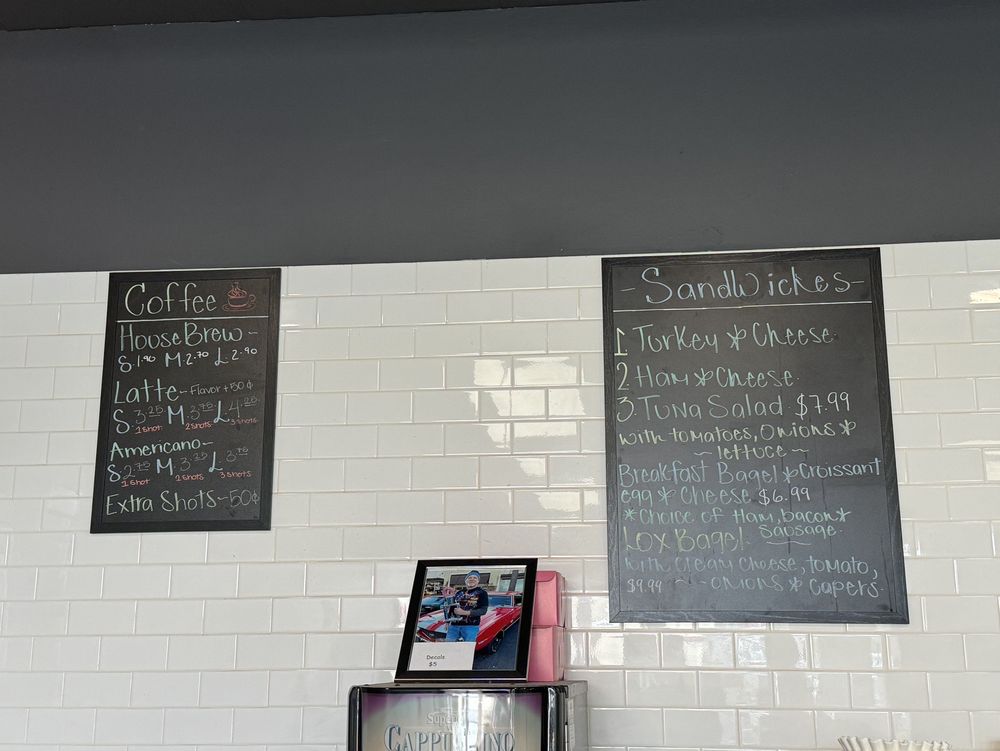 Coffee
House Brew -
S. 1.90 M. 2.70 L. 2.90
Latte - Flavor + 50¢
S 3.25 M 3.75 L 4.25
1 shot 2 shots 3 shots
Americano -
S 2.75 M 3.25 L 3.75
1 shot 2 shots 3 shots
Extra Shots - 50¢
- SandWiches -
1 Turkey & Cheese
2 Ham & Cheese
3. Tuna Salad $7.99
with tomatoes, Onions &
~ lettuce ~
Breakfast Bagel & Croissant
egg & Cheese $6.99
*Choice of Ham, bacon &
Sausage
Lox Bagel
with cream cheese, tomato,
$9.99 ~ ~ onions & Capers.
Decals
$5
CAPPUCCINO